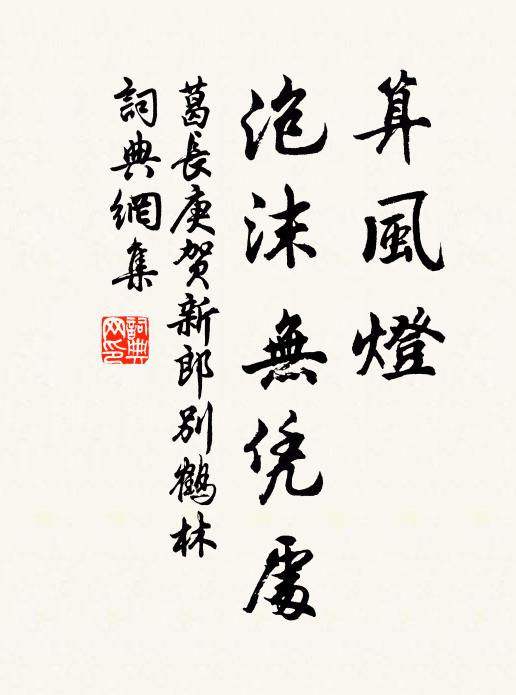 算風燈
泡沫無凭處
葛長庚贺新郎别鶴林
詞典網集
詞典
网印